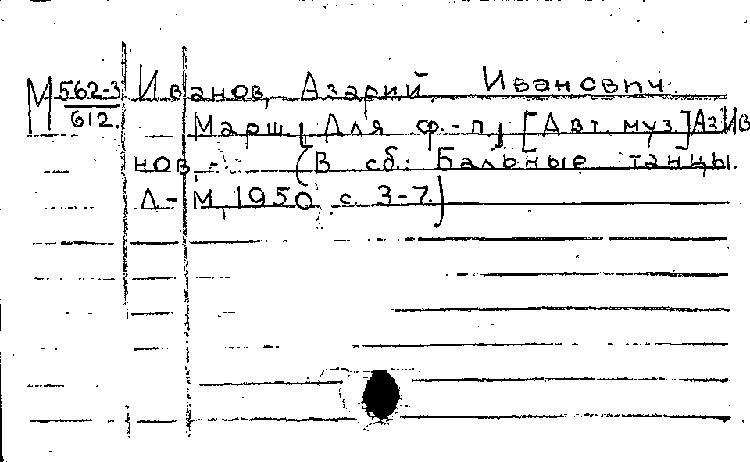 М 562-3 Иванов, Азарий Иванович.
612. Марш. Для ф.-п. [Авт. муз.] Аз. Ива
нов. - (В сб.: Бальные танцы.
Л-М, 1950, с. 3-7.)